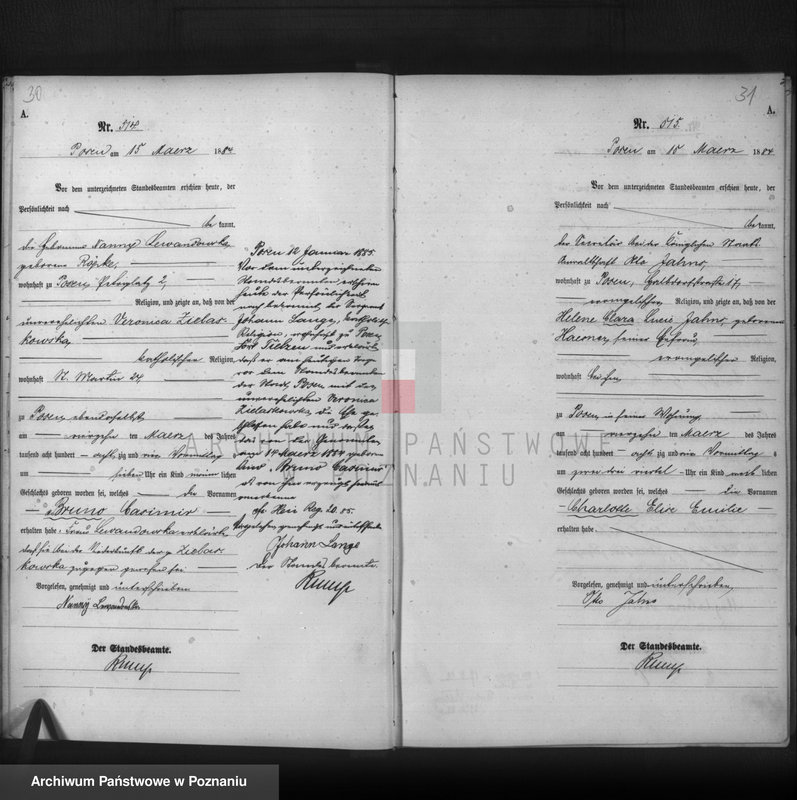 30
A.
Nr. 514
Posen am 15 Maerz 1884
Vor dem unterzeichneten Standesbeamten erschien heute, der
Persönlichkeit nach
be kannt,
die Hebamme Nanny Lewandowska
geborene Röpke,
wohnhaft zu Posen, Petriplatz 2,
Religion, und zeigte an, daß von der
unverehelichten Veronica Zielas
kowska,
katholischer Religion,
wohnhaft St. Martin 24
zu Posen ebendaselbst
am vierzehn ten Maerz des Jahres
tausend acht hundert achtzig und vier Vormittag s
um sieben Uhr ein Kind männ lichen
Geschlechts geboren worden sei, welches die Vornamen
Bruno Casimir
erhalten habe. Frau Lewandowska erklärte,
daß sie bei der Niederkunft der p Zielas
kowska zugegen gewesen sei
Vorgelesen, genehmigt und unterschrieben
Nanny Lewandowska
Der Standesbeamte.
Posen 12 Januar 1885.
Vor dem unterzeichneten
Standesbeamten erschien
heute der Persönlichkeit
nach bekannt, der Sergeant
Johann Lange,
Religion, wohnhaft zu Posen
Fort Tietzen und erklärte,
daß er am heutigen Tage
vor dem Standesbeamten
der Stadt Posen mit der
unverehelichten Veronica
Zielaskowska die Ehe ge
schlossen habe und daß er
das von der Genannten
am 14 Maerz 1884 geborene
Kind, Bruno Casimir
als von ihm erzeugt hiermit
anerkenne
Reg. 20. 85.
Vorgelesen genehmigt und unterschrieben
Johann Lange
Der Standesbeamte.
31
A.
Nr. 515.
Posen am 15 Maerz 1884
Vor dem unterzeichneten Standesbeamten erschien heute, der
Persönlichkeit nach
be kannt,
der Secretär bei der Königlichen Staats
Anwaltschaft Otto Jahns,
wohnhaft zu Posen, Halbdorfstraße 17,
evangelischer Religion, und zeigte an, daß von der
Helene Clara Lucie Jahns, geborenen
seiner Ehefrau,
evangelischer Religion,
wohnhaft bei ihm,
zu Posen in seiner Wohnung
am vierzehn ten Maerz des Jahres
tausend acht hundert achtzig und vier Vormittag s
um zwei drei viertel Uhr ein Kind weib lichen
Geschlechts geboren worden sei, welches die Vornamen
Charlotte Elise Emilie
erhalten habe
Vorgelesen, genehmigt und unterschrieben
Otto Jahns
Der Standesbeamte.
ARCHIWUM PAŃSTWOWE
W POZNANIU
Archiwum Państwowe w Poznaniu